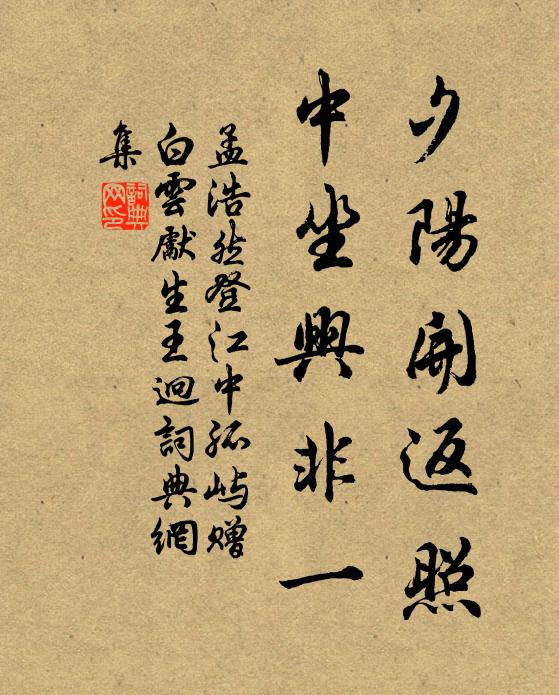 夕陽開返照
中坐興非一
孟浩然登江中孤屿赠
白雲獻生王迴詞典網
集
詞典
网印